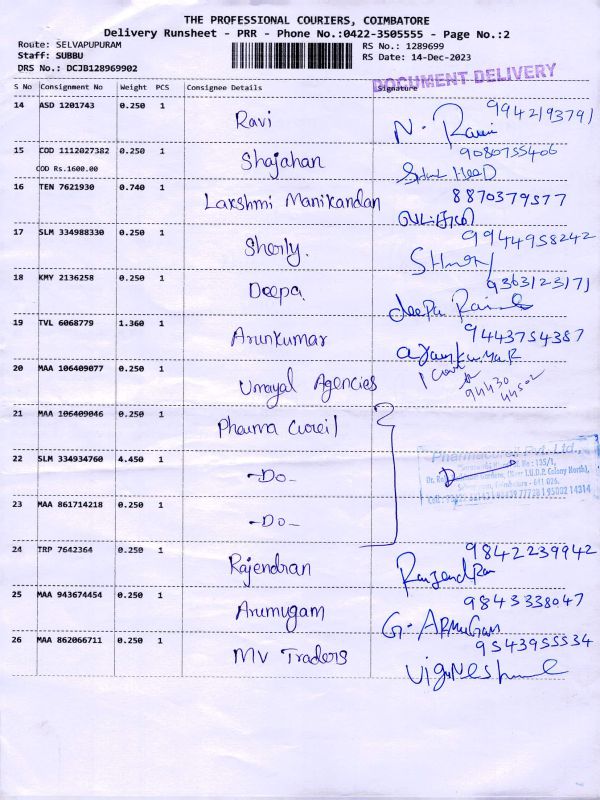 THE PROFESSIONAL COURIERS, COIMBATORE
Delivery Runsheet - PRR - Phone No.:0422-3505555 - Page No.:2
Route: SELVAPUPURAM
RS No.: 1289699
Staff: SUBBU
RS Date: 14-Dec-2023
DRS No.: DCJB128969902
DOCUMENT DELIVERY
S No Consignment No Weight PCS Consignee Details Signature
14 ASD 1201743 0.250 1 Ravi N. Ravi 9942193791
15 COD 1112027382 0.250 1 Shajahan 9080755406
COD Rs.1600.00
16 TEN 7621930 0.740 1 Lakshmi Manikandan 8870379577
17 SLM 334988330 0.250 1 Sherly. 9944958242
18 KMY 2136258 0.250 1 Deepa. deepa 9363123171
19 TVL 6068779 1.360 1 Arunkumar 9443754387
20 MAA 106409077 0.250 1 Umayal Agencies 94430 44502
21 MAA 106409046 0.250 1 Pharma Cureil
22 SLM 334934760 4.450 1 -Do-
Pharmacureil Pvt. Ltd.,
23 MAA 861714218 0.250 1 -Do-
24 TRP 7642364 0.250 1 Rajendran 9842239942
25 MAA 943674454 0.250 1 Arumugam G. ARMUGam 9843338047
26 MAA 862066711 0.250 1 MV Traders 9543955534